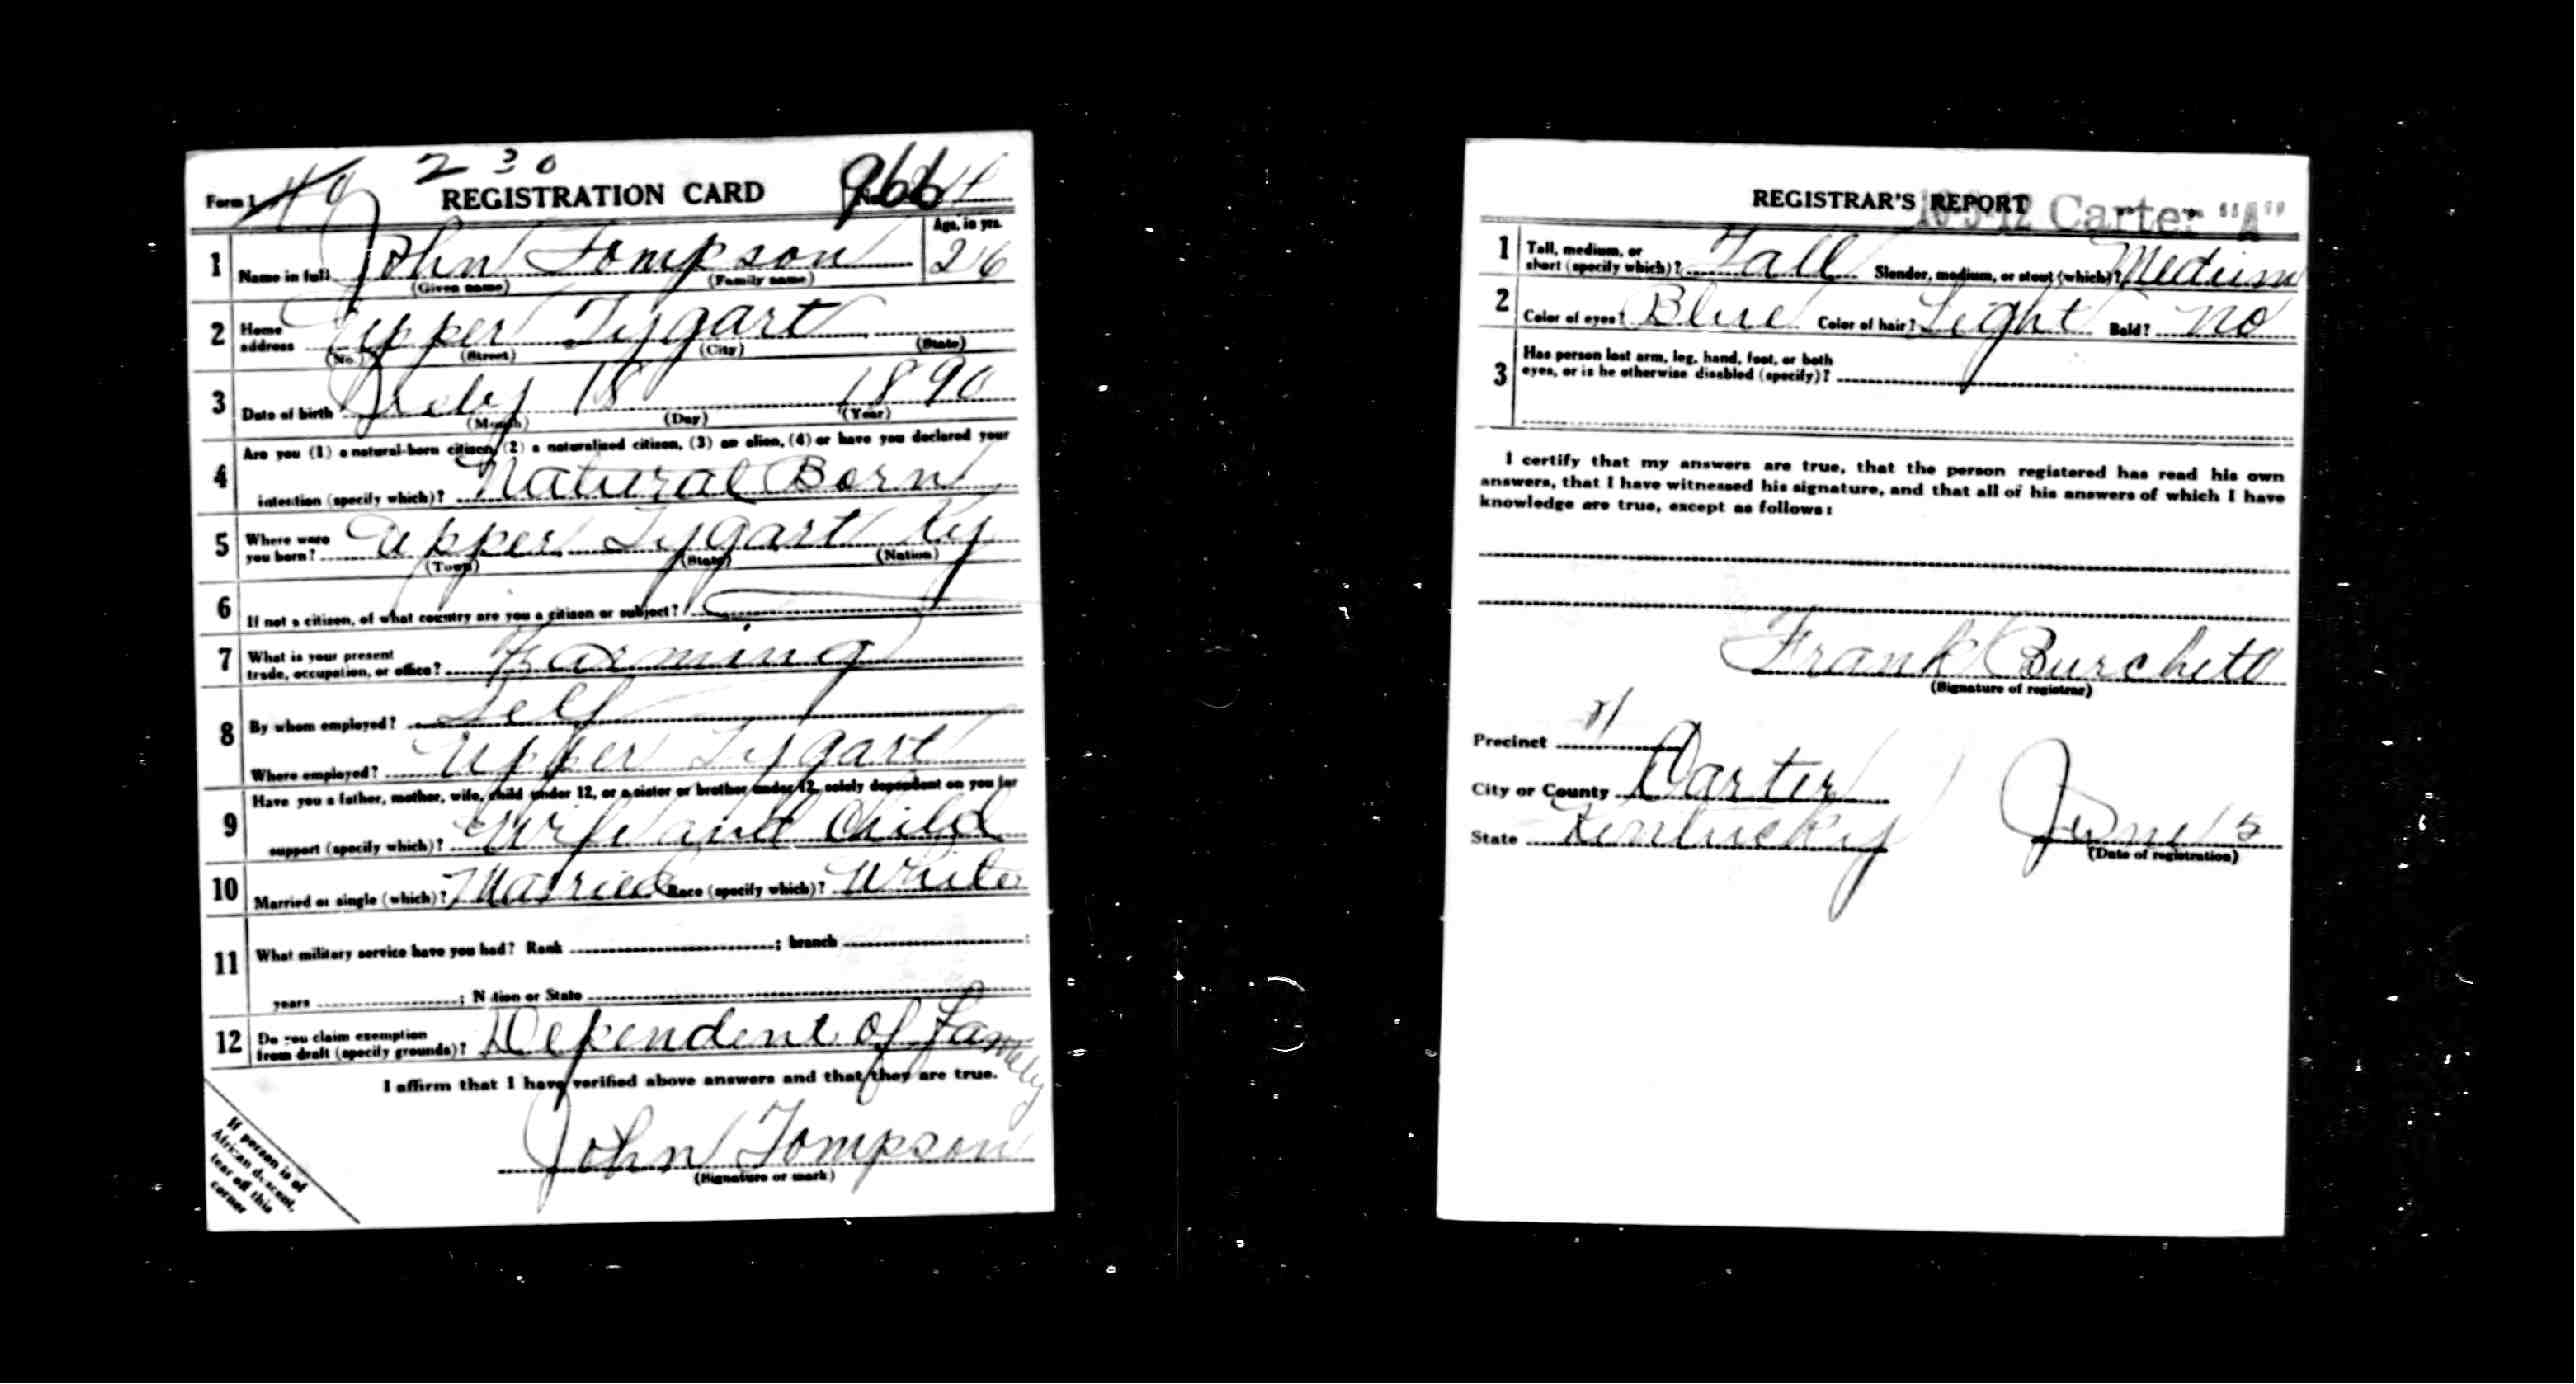 230
Form 1 REGISTRATION CARD 966
Age, in yrs.
1 Name in full John Tompson 26
(Given name) (Family name)
2 Home address Upper Tygart
(No.) (Street) (City) (State)
3 Date of birth July 18 1890
(Month) (Day) (Year)
Are you (1) a natural-born citizen, (2) a naturalized citizen, (3) an alien, (4) or have you declared your
4 intention (specify which)? Natural Born
5 Where were you born? Upper Tygart Ky
(Town) (State) (Nation)
6 If not a citizen, of what country are you a citizen or subject?
7 What is your present
trade, occupation, or office? Farming
8 By whom employed? Self
Where employed? Upper Tygart
Have you a father, mother, wife, child under 12, or a sister or brother under 12, solely dependent on you for
9 support (specify which)? Wife and Child
10 Married or single (which)? Married Race (specify which)? White
11 What military service have you had? Rank ; branch ;
years ; Nation or State
12 Do you claim exemption
from draft (specify grounds)? Dependent of Famely
I affirm that I have verified above answers and that they are true.
John Tompson
(Signature or mark)
If person is of
African descent,
tear off this
corner
REGISTRAR'S REPORT
Carter "A"
1 Tall, medium, or
short (specify which)? Tall Slender, medium, or stout (which)? Medium
2 Color of eyes? Blue Color of hair? Light Bald? no
3 Has person lost arm, leg, hand, foot, or both
eyes, or is he otherwise disabled (specify)?
I certify that my answers are true, that the person registered has read his own
answers, that I have witnessed his signature, and that all of his answers of which I have
knowledge are true, except as follows:
Frank Burchett
(Signature of registrar)
Precinct
City or County Carter
State Kentucky June 5
(Date of registration)